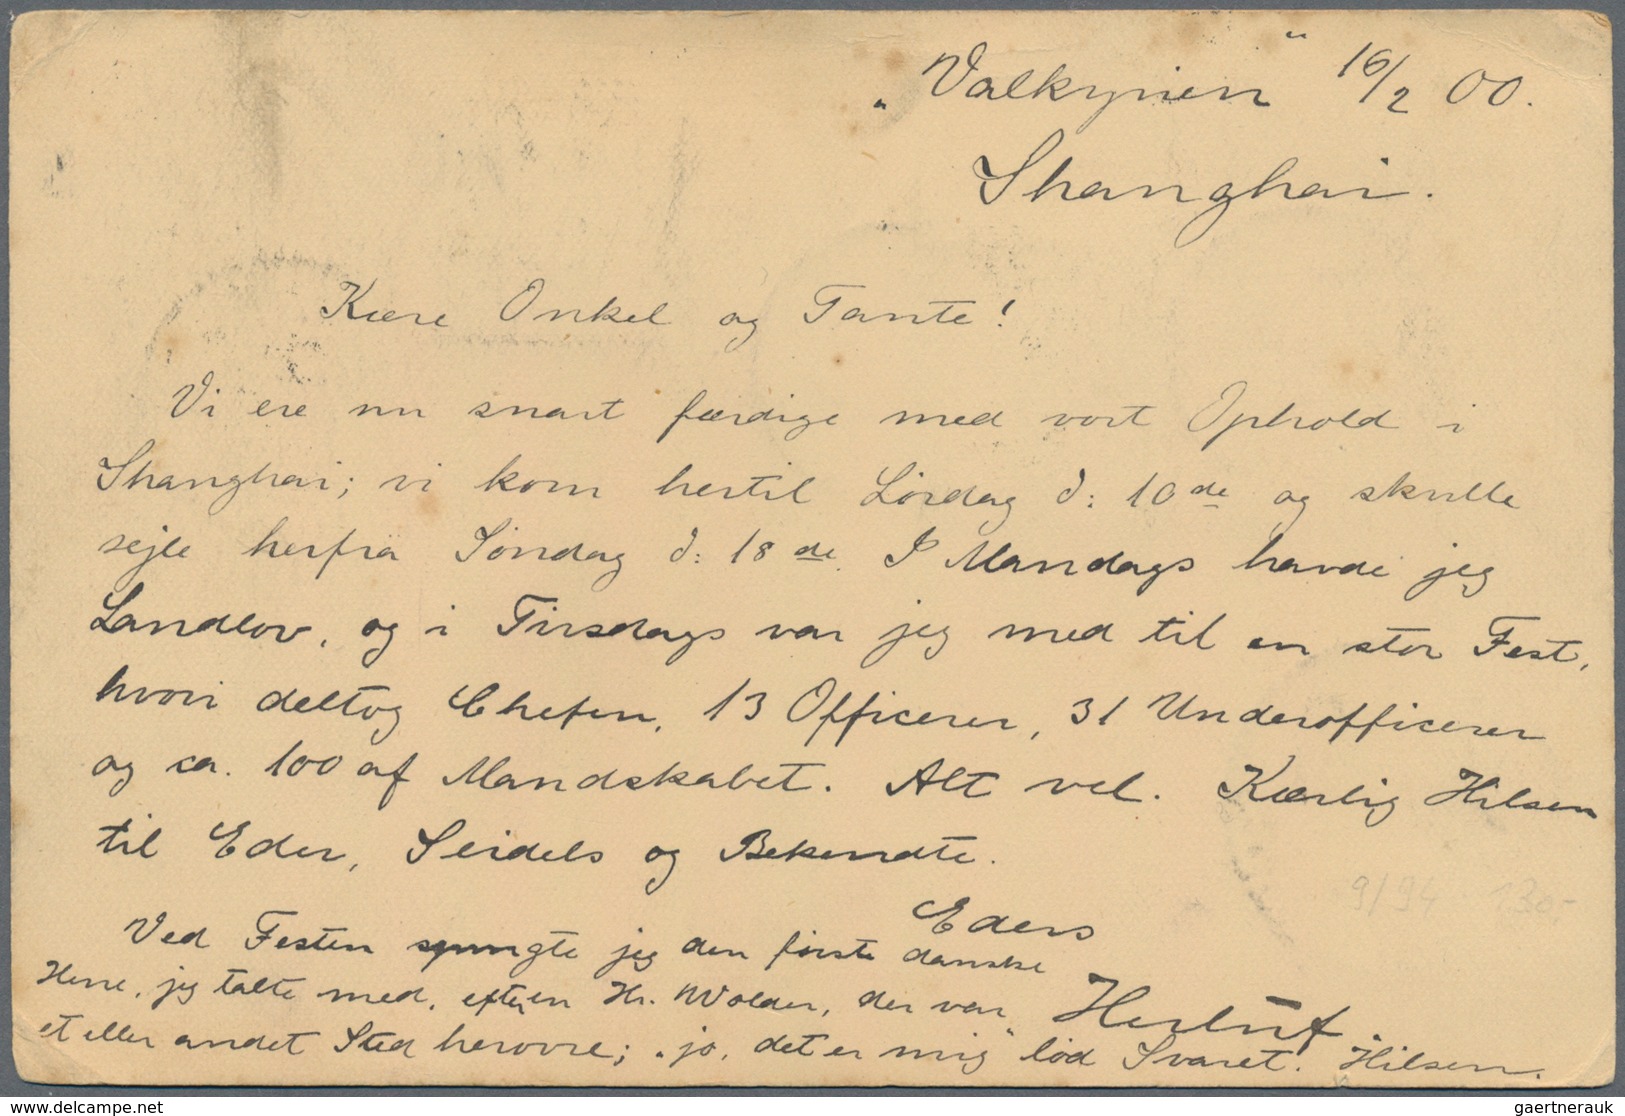 „Valkyrien“ 16/2 00.
Shanghai.
Kære Onkel og Tante!
Vi ere nu snart færdige med vort Ophold i
Shanghai; vi kom hertil Lördag d: 10de og skulle
sejle herfra Söndag d: 18de. I Mandags havde jeg
Landlov, og i Tirsdags var jeg med til en stor Fest,
hvori deltog Chefen, 13 Officerer, 31 Underofficerer
og ca. 100 af Mandskabet. Alt vel. Kærlig Hilsen
til Eder, Seidels og Bekendte.
Eders
Herluf.
Ved Festen spurgte jeg den förste danske
Herre, jeg talte med, efter en Hr. Wolder, der var
et eller andet Sted herovre; „jo, det er mig“ löd Svaret. Hilsen.
9/94 130,-
www.delcampe.net
gaertnerauk